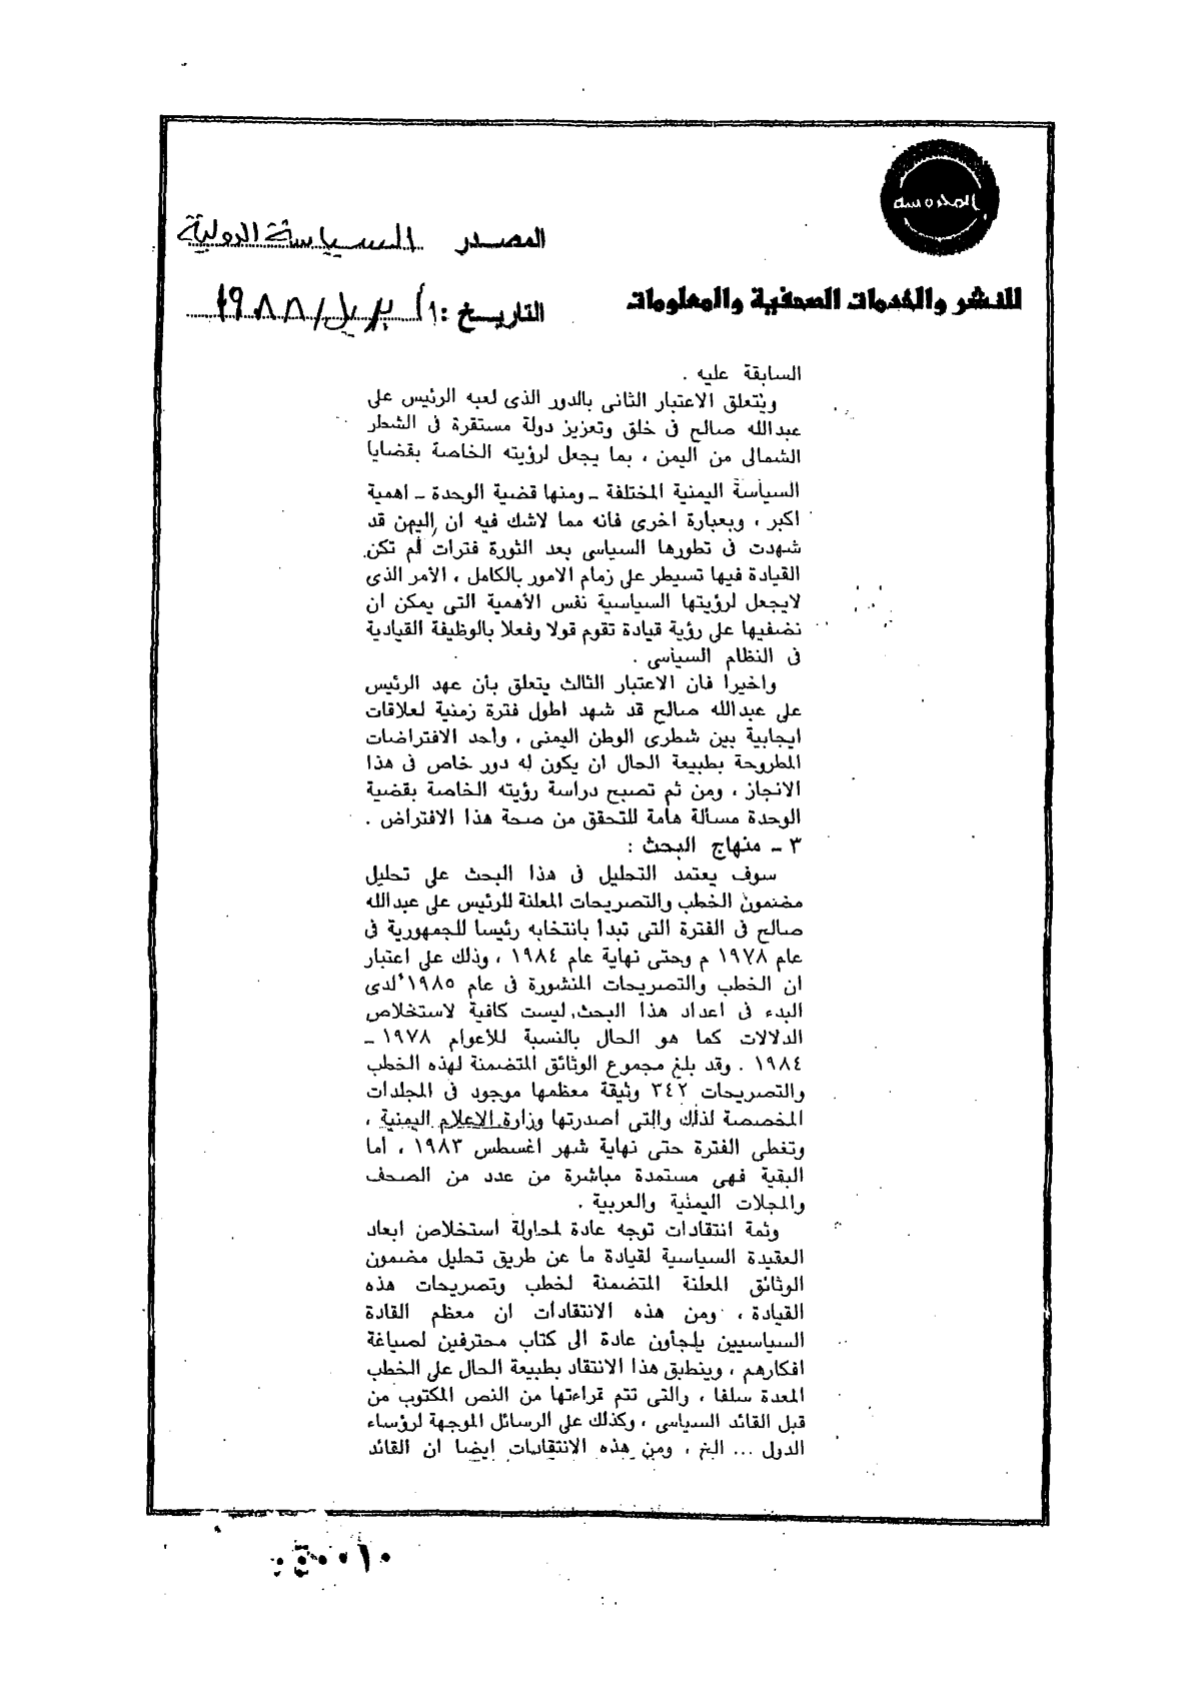 المحروسة
المصدر السياسة الدولية
للنشر والخدمات الصحفية والمعلومات
التاريخ : ١ ابريل/ ١٩٨٨
السابقة عليه .
ويتعلق الاعتبار الثانى بالدور الذى لعبه الرئيس على
عبدالله صالح فى خلق وتعزيز دولة مستقرة فى الشطر
الشمالى من اليمن ، بما يجعل لرؤيته الخاصة بقضايا
السياسة اليمنية المختلفة ـ ومنها قضية الوحدة ـ اهمية
اكبر ، وبعبارة اخرى فانه مما لاشك فيه ان اليمن قد
شهدت فى تطورها السياسى بعد الثورة فترات لم تكن
القيادة فيها تسيطر على زمام الامور بالكامل ، الأمر الذى
لايجعل لرؤيتها السياسية نفس الأهمية التى يمكن ان
نضفيها على رؤية قيادة تقوم قولا وفعلا بالوظيفة القيادية
فى النظام السياسى .
واخيرا فان الاعتبار الثالث يتعلق بأن عهد الرئيس
على عبدالله صالح قد شهد اطول فترة زمنية لعلاقات
ايجابية بين شطرى الوطن اليمنى ، وأحد الافتراضات
المطروحة بطبيعة الحال ان يكون له دور خاص فى هذا
الانجاز ، ومن ثم تصبح دراسة رؤيته الخاصة بقضية
الوحدة مسألة هامة للتحقق من صحة هذا الافتراض .
٣ ـ منهاج البحث :
سوف يعتمد التحليل فى هذا البحث على تحليل
مضمون الخطب والتصريحات المعلنة للرئيس على عبدالله
صالح فى الفترة التى تبدأ بانتخابه رئيسا للجمهورية فى
عام ١٩٧٨ م وحتى نهاية عام ١٩٨٤ ، وذلك على اعتبار
ان الخطب والتصريحات المنشورة فى عام ١٩٨٥ لدى
البدء فى اعداد هذا البحث ليست كافية لاستخلاص
الدلالات كما هو الحال بالنسبة للأعوام ١٩٧٨ ـ
١٩٨٤ . وقد بلغ مجموع الوثائق المتضمنة لهذه الخطب
والتصريحات ٣٤٢ وثيقة معظمها موجود فى المجلدات
المخصصة لذلك والتى اصدرتها وزارة الاعلام اليمنية ،
وتغطى الفترة حتى نهاية شهر اغسطس ١٩٨٣ ، أما
البقية فهى مستمدة مباشرة من عدد من الصحف
والمجلات اليمنية والعربية .
وثمة انتقادات توجه عادة لمحاولة استخلاص ابعاد
العقيدة السياسية لقيادة ما عن طريق تحليل مضمون
الوثائق المعلنة المتضمنة لخطب وتصريحات هذه
القيادة ، ومن هذه الانتقادات ان معظم القادة
السياسيين يلجأون عادة الى كتاب محترفين لصياغة
افكارهم ، وينطبق هذا الانتقاد بطبيعة الحال على الخطب
المعدة سلفا ، والتى تتم قراءتها من النص المكتوب من
قبل القائد السياسى ، وكذلك على الرسائل الموجهة لرؤساء
الدول ... الخ ، ومن هذه الانتقادات ايضا ان القائد